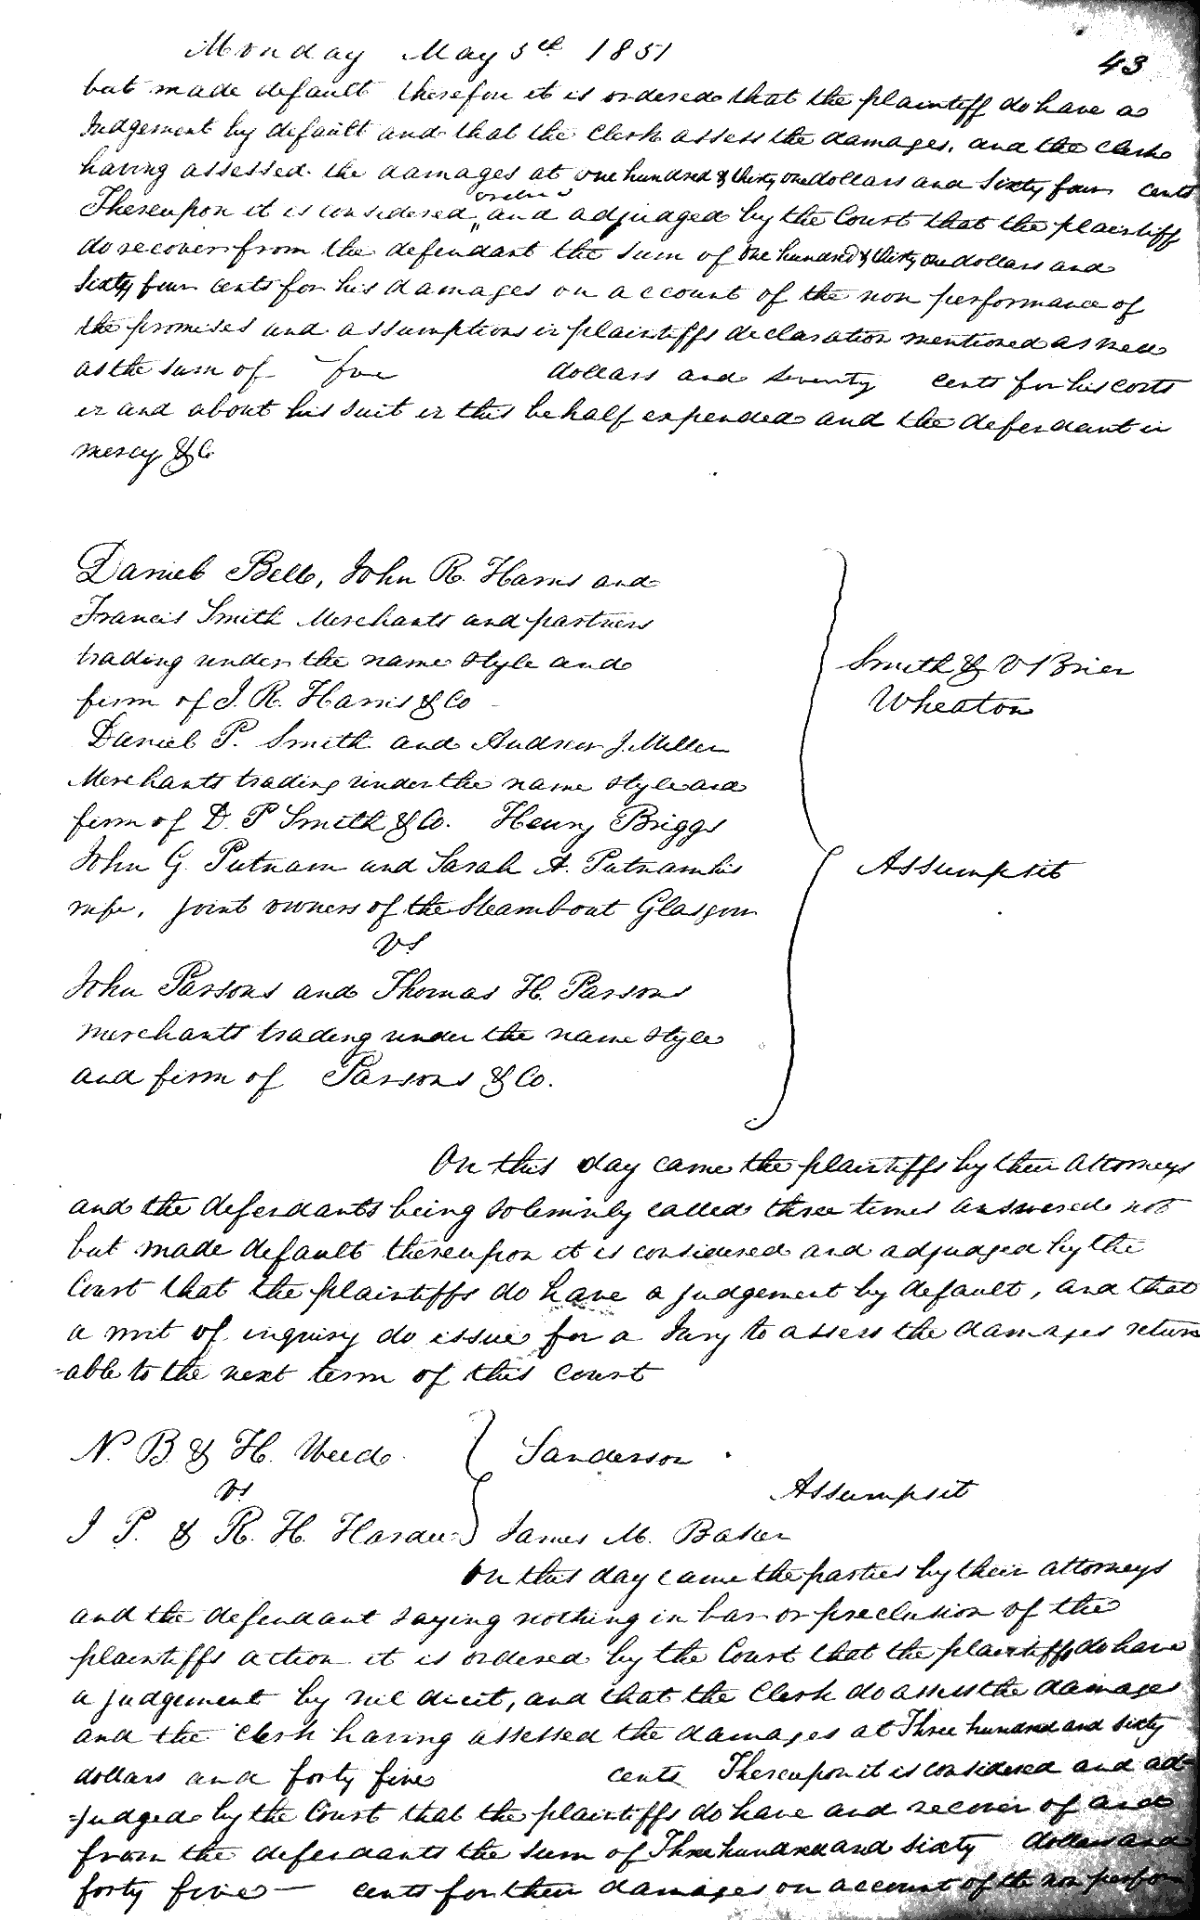 Monday May 5th 1851
43
but made default therefore it is ordered that the plaintiff do have a
Judgement by default and that the Clerk assess the damages, and the Clerk
having assessed the damages at one hundred & thirty one dollars and Sixty four cents
ordered
Thereupon it is considered, and adjudged by the Court that the plaintiff
do recover from the defendant the sum of one hundred & thirty one dollars and
Sixty four cents for his damages on account of the non performance of
the promises and assumptions in plaintiffs declaration mentioned as well
as the sum of five dollars and seventy cents for his costs
in and about his suit in this behalf expended and the defendant in
mercy &C
Daniel Bell, John R. Harris and
Francis Smith Merchants and partners
trading under the name style and
firm of J. R. Harris & Co
Smith & O'Brien
Wheaton
Daniel P. Smith and Andrew J. Miller
Merchants trading under the name style and
firm of D. P Smith & Co. Henry Briggs
John G. Putnam and Sarah A. Putnam his
Assumpsit
wife, joint owners of the Steamboat Glasgow
vs
John Parsons and Thomas H. Parsons
merchants trading under the name style
and firm of Parsons & Co.
On this day came the plaintiffs by their Attorneys
and the defendants being solemnly called three times answered not
but made default thereupon it is considered and adjudged by the
Court that the plaintiffs do have a judgement by default, and that
a writ of inquiry do issue for a Jury to assess the damages return
-able to the next term of this Court
N. B & H. Weed
Sanderson
vs
Assumpsit
J P. & R. H. Harden
James M. Baker
On this day came the parties by their attorneys
and the defendant saying nothing in bar or preclusion of the
plaintiffs action it is ordered by the Court that the plaintiffs do have
a judgement by nil dicit, and that the Clerk do assess the damages
and the Clerk having assessed the damages at Three hundred and sixty
dollars and forty five cents Thereupon it is considered and ad-
-judged by the Court that the plaintiffs do have and recover of and
from the defendants the sum of Three hundred and sixty dollars and
forty five - cents for their damages on account of the non perfor